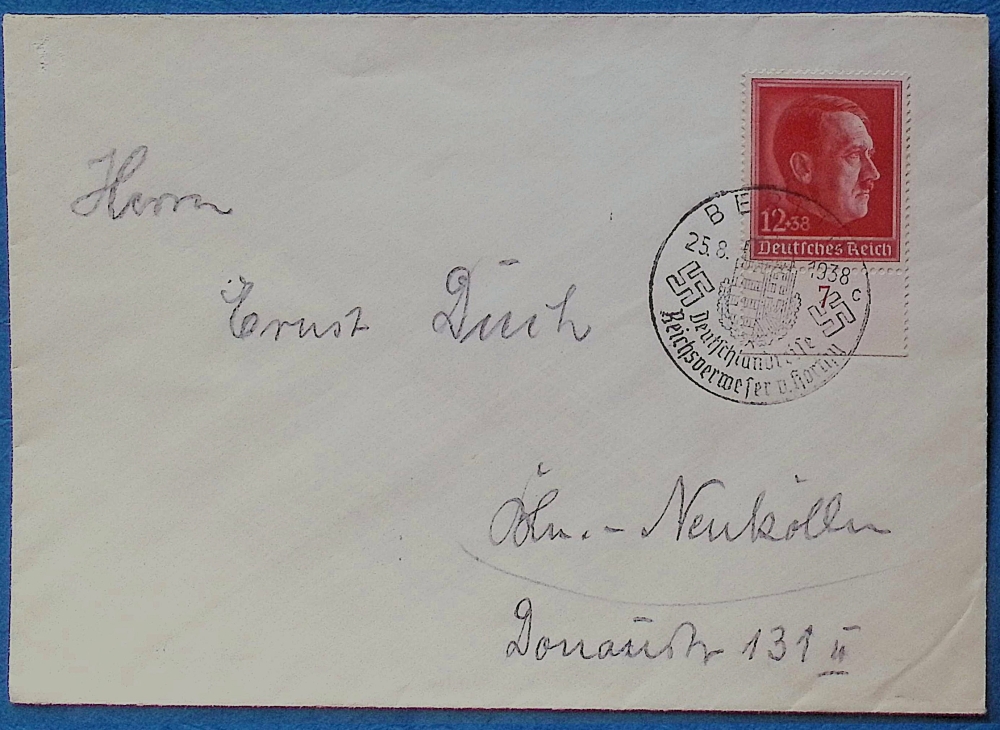 Herrn
Ernst Duch
Bln.-Neukölln
Donaustr 131 II
12+38
Deutsches Reich
7
25.8. 1938
c
Deutschlandreise
Reichsverweser v. Horthy